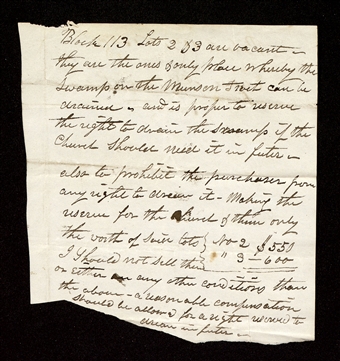 Block 113. Lots 2 & 3 are vacant –
they are the ones & only place whereby the
Swamp on the Munson Tract can be
drained, and is proper to reserve
the right to drain the Swamp if the
Church should need it in futer –
also to prohibit the purchaser from
any right to drain it – Making the
reserve for the Church of them only
the worth of Seier lots } No 2 $550
I should not sell them } " 3 – 600
on either on any other conditions than
the above – a reasonable compensation
should be allowed for a right reserve to
drain in futer –